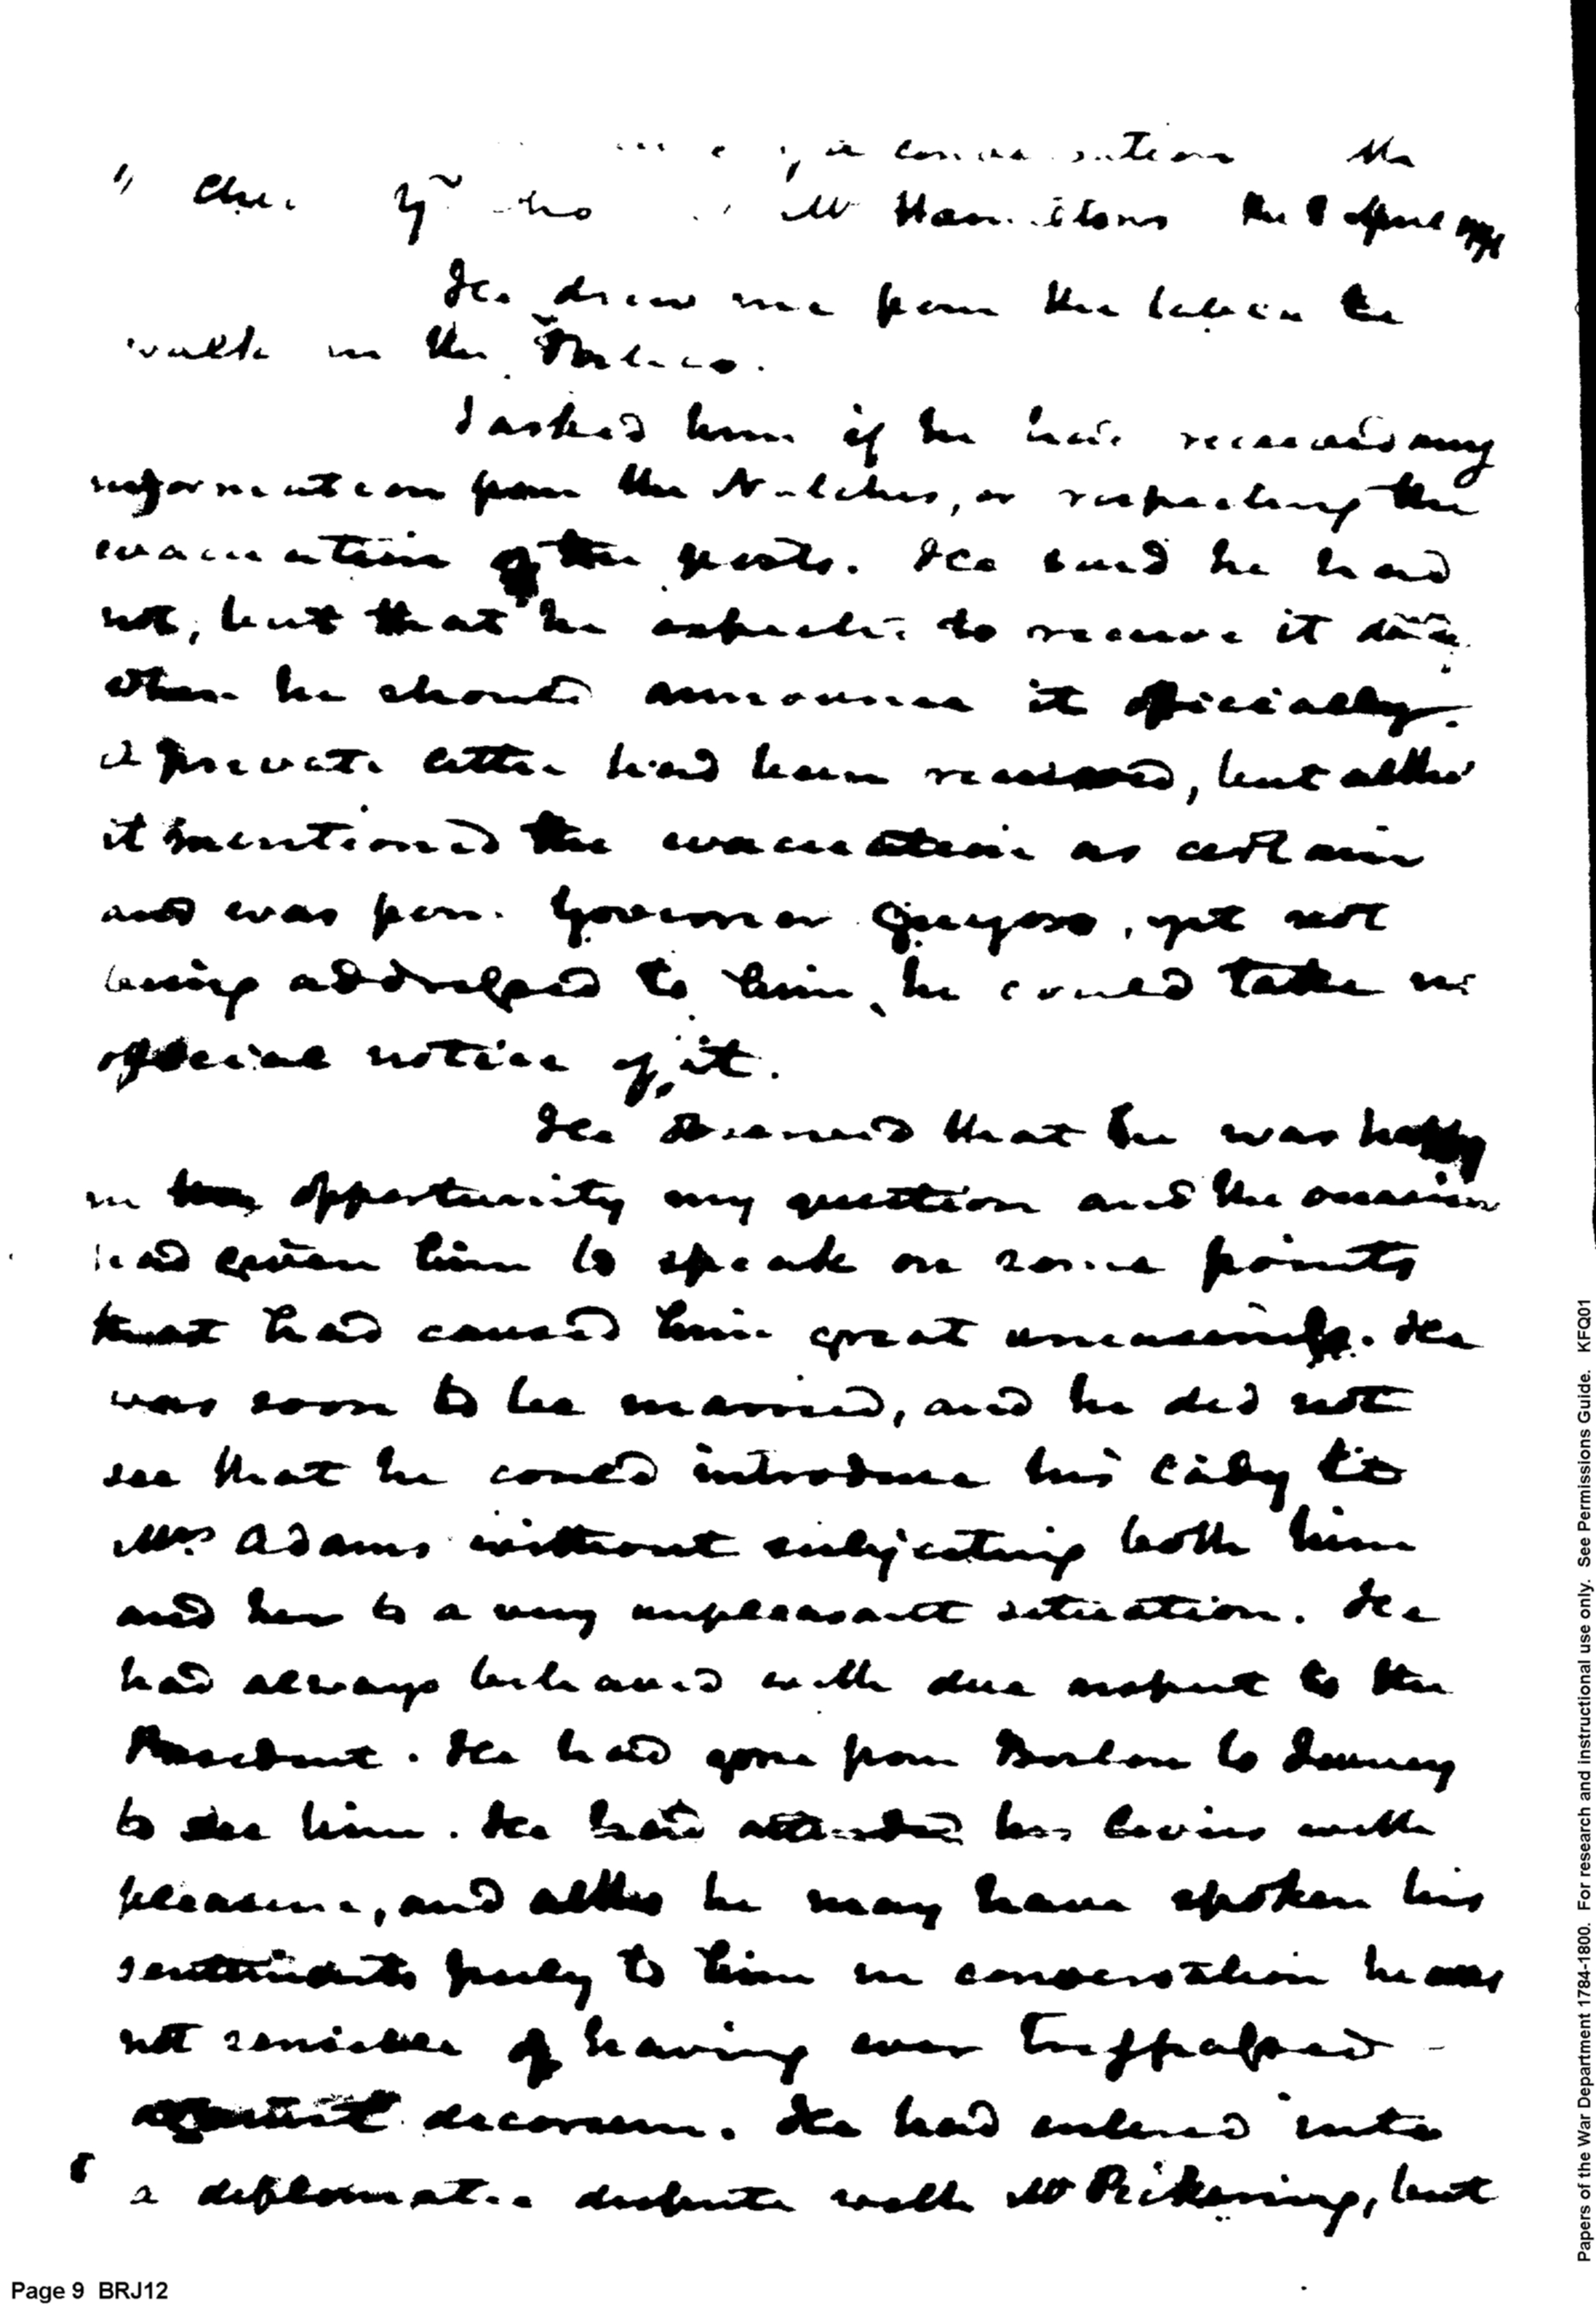 conversation
Mr Hamiltons the 8 April
He drew me from the to
walk in the
I asked him if he had received any
information from the Natches, or respecting the
evacuation of the posts. He said he had
not, but that he expected to receive it
when he should announce it officially.
A private letter had been received, but altho'
it mentioned the evacuation as certain
and was from Governor Guyoso, yet not
being addressed to him, he could take no
official notice of it.
He seemed that he was happy
in opportunity my question and the occasion
had given him to speak on some points
that had caused him great uneasiness. He
was soon to be married, and he did not
see that he could introduce his lady to
Mrs Adams without subjecting both him
and her to a very unpleasant situation. He
had always behaved with due respect to the
President. He had gone from Boston to
to see him. He had attended his levies with
pleasure, and altho he may have spoken his
sentiments freely to him in conversation he was
not sensible of having ever trespassed
against decorum. He had entered into
a diplomatic dispute with Mr Pickering, but
Page 9 BRJ12
Papers of the War Department 1784-1800. For research and instructional use only. See Permissions Guide. KFQ01